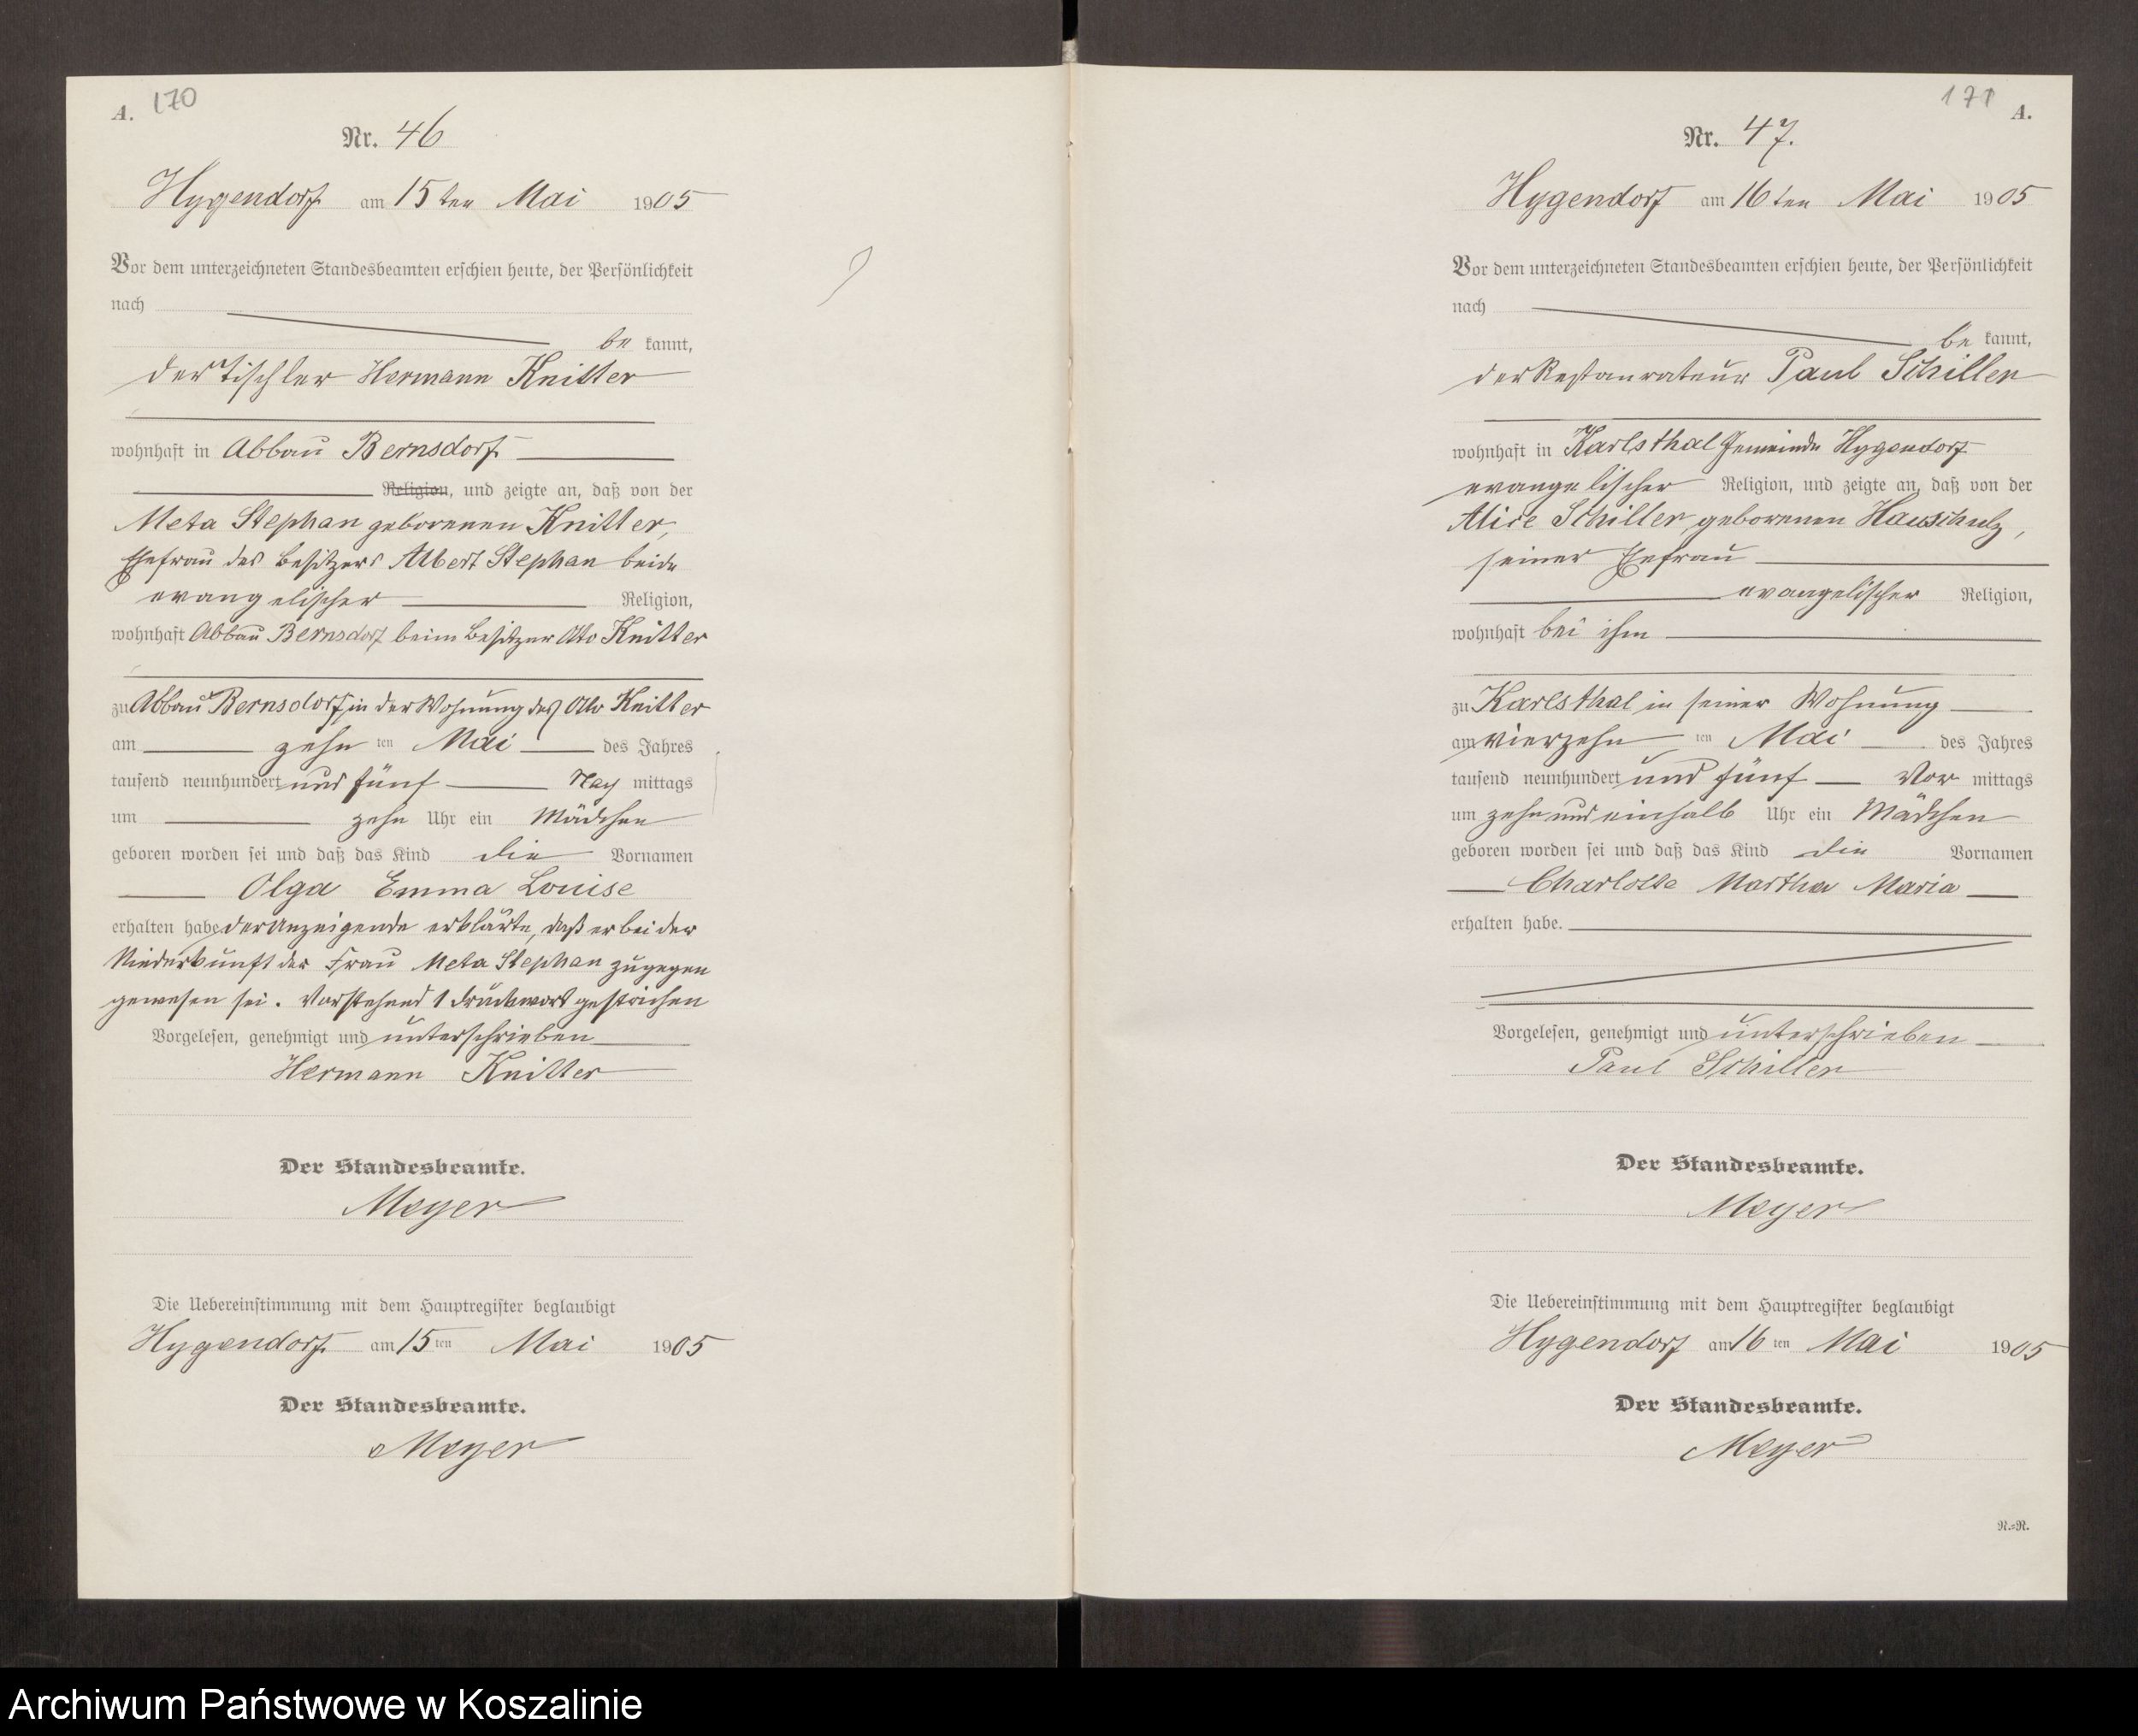 A. 170
Nr. 46
Hygendorf am 15ten Mai 1905
Vor dem unterzeichneten Standesbeamten erschien heute, der Persönlichkeit
nach
be kannt,
der Tischler Hermann Knitter
wohnhaft in Abbau Bernsdorf
Religion, und zeigte an, daß von der
Meta Stephan geborenen Knitter,
Ehefrau des Besitzers Albert Stephan beide
evangelischer Religion,
wohnhaft Abbau Bernsdorf beim Besitzer Otto Knitter
zu Abbau Bernsdorf, in der Wohnung des Otto Knitter
am zehn ten Mai des Jahres
tausend neunhundert und fünf Nach mittags
um zehn Uhr ein Mädchen
geboren worden sei und daß das Kind die Vornamen
Olga Emma Louise
erhalten habe der Anzeigende erklärte, daß er bei der
Niederkunft der Frau Meta Stephan zugegen
gewesen sei. Vorstehend 1 Druckwort gestrichen
Vorgelesen, genehmigt und unterschrieben
Hermann Knitter
Der Standesbeamte.
Meyer
Die Uebereinstimmung mit dem Hauptregister beglaubigt
Hygendorf am 15 ten Mai 1905
Der Standesbeamte.
Meyer
171 A.
Nr. 47.
Hygendorf am 16ten Mai 1905
Vor dem unterzeichneten Standesbeamten erschien heute, der Persönlichkeit
nach
be kannt,
der Restaurateur Paul Schiller
wohnhaft in Karlsthal Gemeinde Hygendorf
evangelischer Religion, und zeigte an, daß von der
Alice Schiller geborenen Hauschulz,
seiner Ehefrau
evangelischer Religion,
wohnhaft bei ihm
zu Karlsthal in seiner Wohnung
am vierzehn ten Mai des Jahres
tausend neunhundert und fünf Vor mittags
um zehn und einhalb Uhr ein Mädchen
geboren worden sei und daß das Kind die Vornamen
Charlotte Martha Maria
erhalten habe.
Vorgelesen, genehmigt und unterschrieben
Paul Schiller
Der Standesbeamte.
Meyer
Die Uebereinstimmung mit dem Hauptregister beglaubigt
Hygendorf am 16 ten Mai 1905
Der Standesbeamte.
Meyer
R.=R.
Archiwum Państwowe w Koszalinie